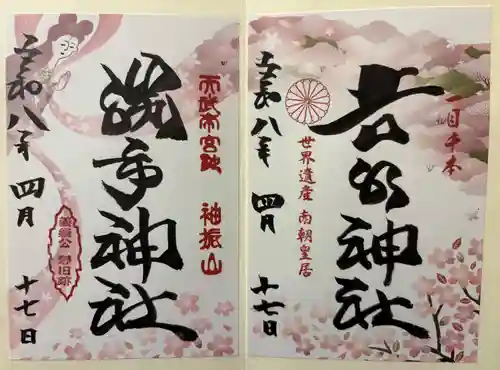 一目千本
吉水神社
世界遺産 南朝皇居
令和八年 四月 十七日
天武帝宮跡 袖振山
勝手神社
義經公 旧跡
令和八年 四月 十七日